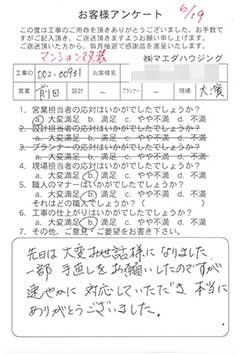 お客様アンケート
6/19
この度は工事のご用命を頂きありがとうございました。お手数で
すがご記入頂き、ご返送頂きますようお願い申し上げます。
ご返送頂いた方から、毎月抽選で感謝品を差し上げます。
マンション改装
㈱マエダハウジング
工事ID 002-00931 お客様名
営業 前田 設計 － プランナー － 現場 大濱
1. 営業担当者の応対はいかがでしたでしょうか？
a.大変満足 b.満足 c.やや不満 d.不満
2. 設計担当者の応対はいかがでしたでしょうか？
a.大変満足 b.満足 c.やや不満 d.不満
3. プランナーの応対はいかがでしたでしょうか？
a.大変満足 b.満足 c.やや不満 d.不満
4. 現場担当者の応対はいかがでしたでしょうか？
a.大変満足 b.満足 c.やや不満 d.不満
5. 職人のマナーはいかがでしたでしょうか？
a.大変満足 b.満足 c.やや不満 d.不満
それはどの職人でしょうか？（ ）
6. 工事の仕上がりはいかがでしたでしょうか？
a.大変満足 b.満足 c.やや不満 d.不満
7. その他、ご意見・ご要望をお書き下さい。
先日は大変お世話様になりました。
一部手直しをお願いしたのですが
速やかに対応していただき本当に
ありがとうございました。